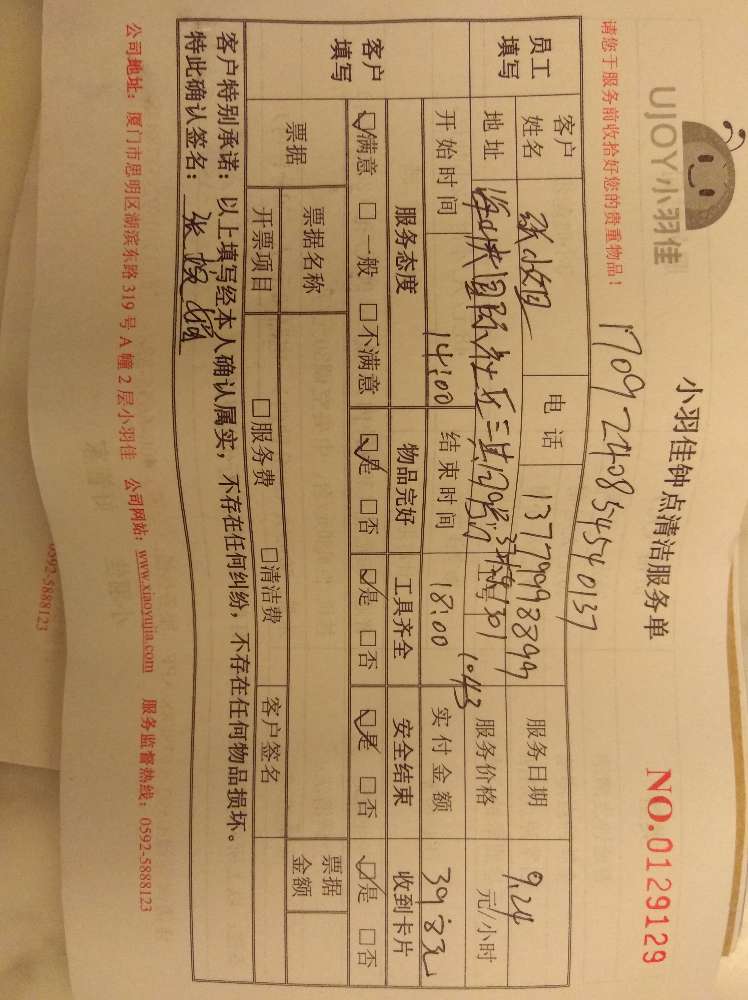 UJOY小羽佳
小羽佳钟点清洁服务单
NO.0129129
请您于服务前收拾好您的贵重物品！
1709240854540137
员工填写
客户姓名 张小姐 电话 13779998899 服务日期 9.24
地址 国际 1301 1043 服务价格 元/小时
开始时间 14:00 结束时间 18:00 实付金额 39.83元
客户填写
服务态度 物品完好 工具齐全 安全结束 收到卡片
☑满意 □一般 □不满意 ☑是 □否 ☑是 □否 ☑是 □否 ☑是 □否
票据 票据名称 票据金额
开票项目 □服务费 □清洁费 客户签名
客户特别承诺：以上填写经本人确认属实，不存在任何纠纷，不存在任何物品损坏。
特此确认签名：张
公司地址：厦门市思明区湖滨东路 319 号 A 幢 2 层小羽佳 公司网站：www.xiaoyujia.com 服务监督热线：0592-5888123
0592-5888123